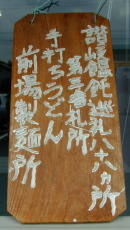 讃岐饂飩巡礼八十八カ所
第三番札所
手打ちうどん
前場製麺所